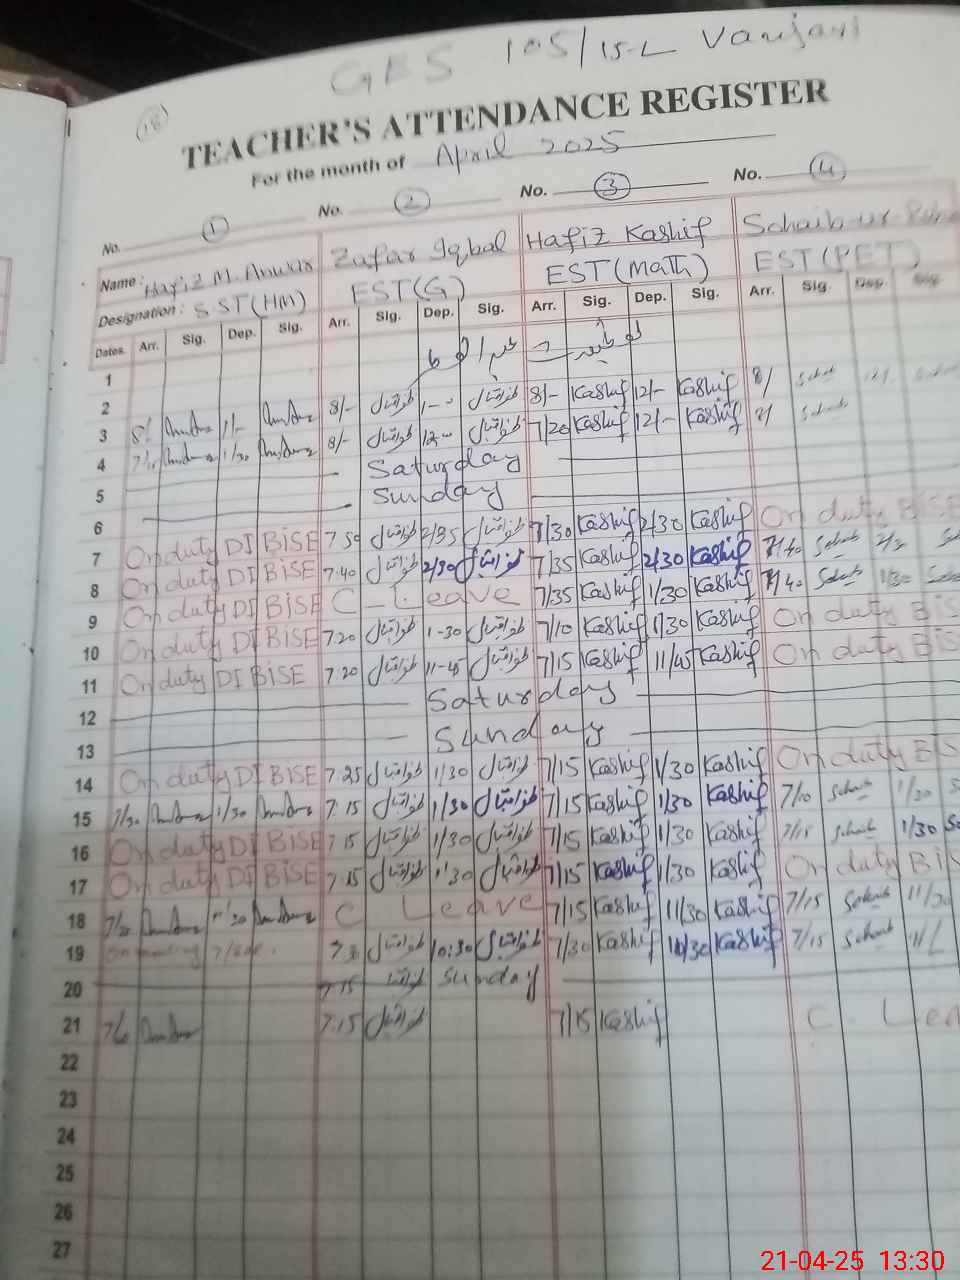 GBS 105/15-L Vanjari
18
TEACHER'S ATTENDANCE REGISTER
For the month of April 2025
No. 1 No. 2 No. 3 No. 4
Name: Hafiz M. Anwar Zafar Iqbal Hafiz Kashif Sohaib-ur-
Designation: S.ST(HM) EST(G) EST(Math) EST(PET)
Dates. Arr. Sig. Dep. Sig. Arr. Sig. Dep. Sig. Arr. Sig. Dep. Sig. Arr. Sig. Dep. Sig.
1
2 8/- 1/- 8/- ظفراقبال 1-0 ظفراقبال 8/- Kashif 12/- Kashif 8/ Sohaib 12/-
3 1/30 8/- ظفراقبال 12-0 ظفراقبال 7/20 Kashif 12/- Kashif 8/ Sohaib
4 Saturday
5 Sunday
6
7 On duty DI BISE 7 50 ظفراقبال 2/35 ظفراقبال 7/30 Kashif 2/30 Kashif On duty BISE
8 On duty DI BISE 7.40 ظفراقبال 2/30 ظفراقبال 7/35 Kashif 2/30 Kashif 7/40 Sohaib 2/3
9 On duty DI BISE C - Leave 7/35 Kashif 1/30 Kashif 7/40 Sohaib 1/30 Sohaib
10 On duty DI BISE 7.20 ظفراقبال 1-30 ظفراقبال 7/10 Kashif 1/30 Kashif On duty BISE
11 On duty DI BISE 7 20 ظفراقبال 11-45 ظفراقبال 7/15 Kashif 11/45 Kashif On duty BIS
12 Saturday
13 Sunday
14 On duty DI BISE 7.25 ظفراقبال 1/30 ظفراقبال 7/15 Kashif 1/30 Kashif On duty BIS
15 7/30 1/30 7.15 ظفراقبال 1/30 ظفراقبال 7/15 Kashif 1/30 Kashif 7/10 Sohaib 1/30 S
16 On duty DI BISE 7 15 ظفراقبال 1/30 ظفراقبال 7/15 Kashif 1/30 Kashif 7/15 Sohaib 1/30 So
17 On duty DI BISE 7.15 ظفراقبال 1/30 ظفراقبال 7/15 Kashif 1/30 Kashif On duty BIS
18 11/30 C Leave 7/15 Kashif 11/30 Kashif 7/15 Sohaib 11/30
19 ظفراقبال 10:30 ظفراقبال 7/30 Kashif 10/30 Kashif 7/15 Sohaib
20 7 15 Sunday
21 7.15 ظفراقبال 7/15 Kashif C. Lea
22
23
24
25
26
27
21-04-25 13:30